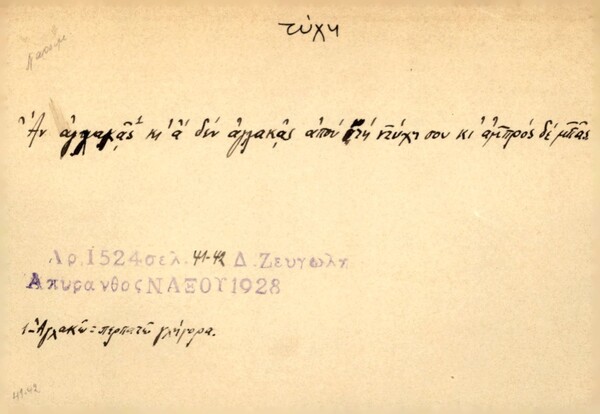 τύχη
Ἂν ἀγλακᾷς¹ κι ἂ δέν ἀγλακᾷς ἀπού τή ντύχη σου κι ἀμπρός δέ μπᾶς
Αρ. 1524 σελ. 41-42 Δ. Ζευγώλη
Απύρανθος ΝΑΞΟΥ 1928
1-Ἀγλακῶ = περπατῶ γλήγορα.
41-42